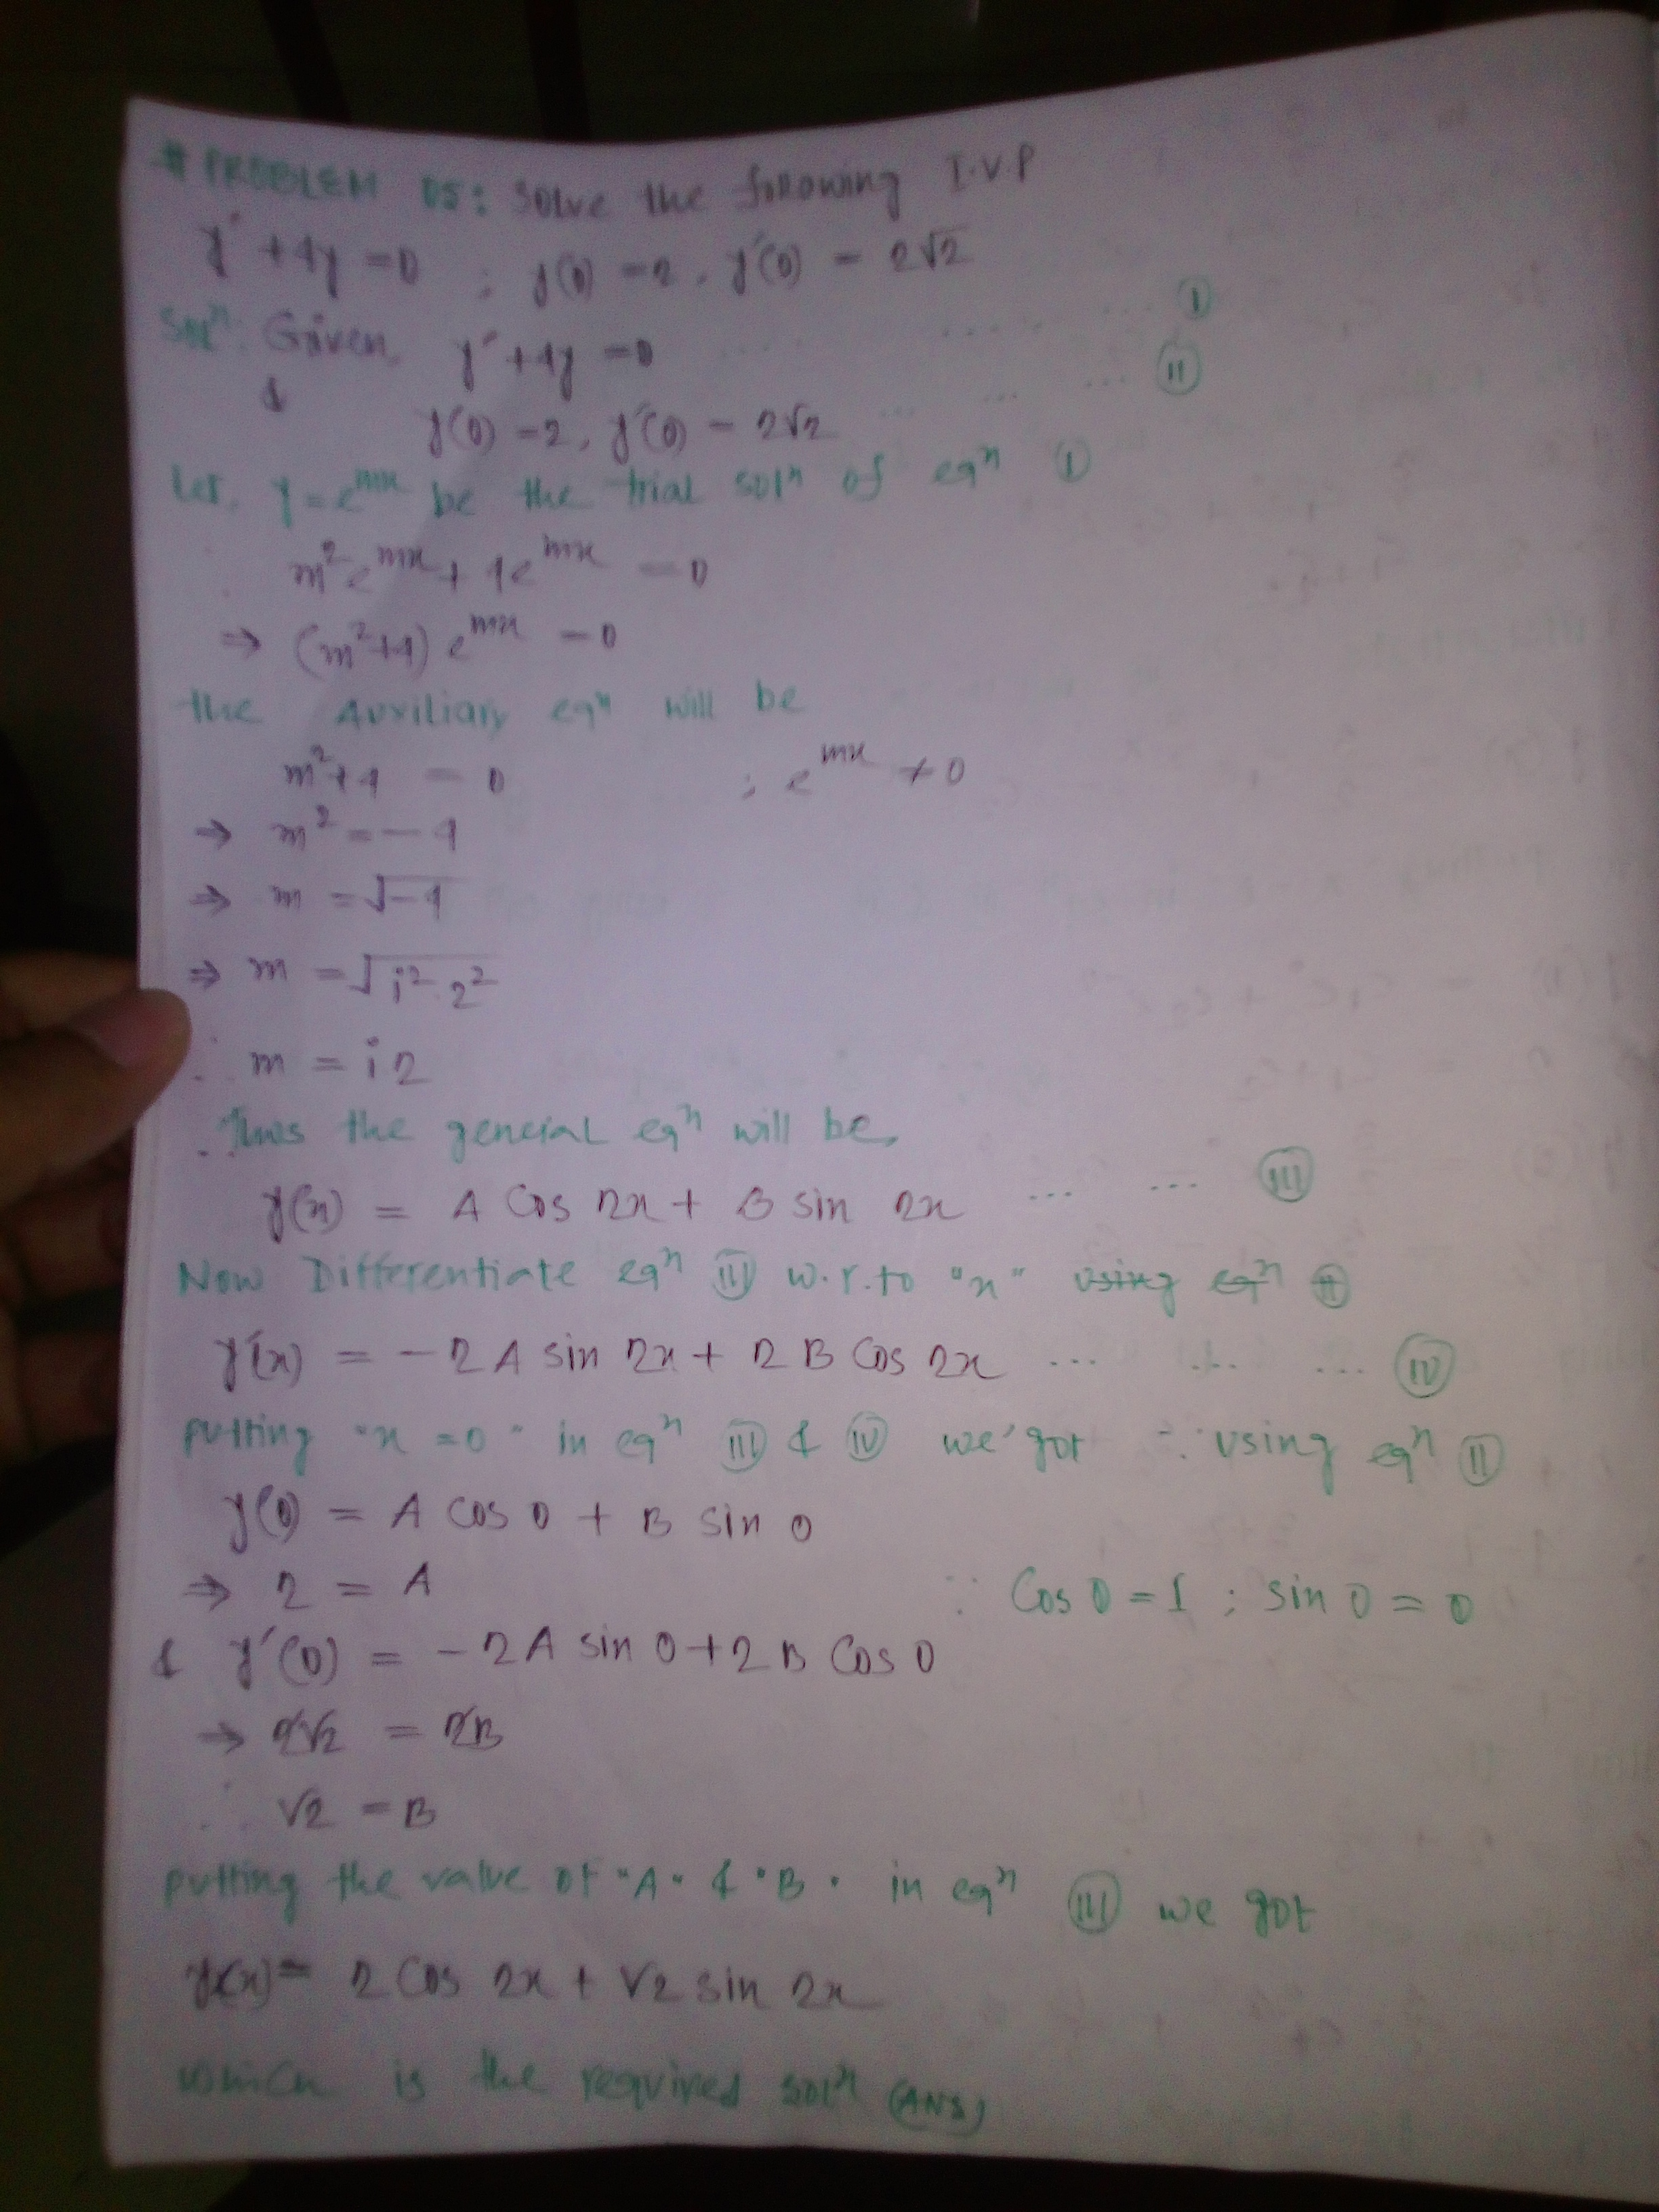 # PROBLEM 05: Solve the following I.V.P
y″ + 4y = 0 ; y(0) = 2, y′(0) = 2√2
Solⁿ: Given, y″ + 4y = 0 ... ... ... (I)
& y(0) = 2, y′(0) = 2√2 ... ... ... (II)
Let, y = e^mx be the trial solⁿ of eqⁿ (I)
∴ m² e^mx + 4e^mx = 0
⇒ (m²+4) e^mx = 0
the Auxiliary eqⁿ will be
m²+4 = 0 ; e^mx ≠ 0
⇒ m² = -4
⇒ m = √-4
⇒ m = √i² 2²
∴ m = i2
∴ Thus the general eqⁿ will be,
y(x) = A Cos 2x + B sin 2x ... ... (III)
Now Differentiate eqⁿ (III) w.r.to "x" using eqⁿ (II)
y′(x) = -2 A sin 2x + 2 B Cos 2x ... ... ... (IV)
putting "x = 0" in eqⁿ (III) & (IV) we got ∴ using eqⁿ (II)
y(0) = A cos 0 + B sin 0
⇒ 2 = A ∵ Cos 0 = 1 ; sin 0 = 0
& y′(0) = -2A sin 0 + 2 B Cos 0
⇒ 2√2 = 2B
∴ √2 = B
putting the value of "A" & "B" in eqⁿ (III) we got
y(x) = 2 Cos 2x + √2 sin 2x
which is the required solⁿ (ANS)